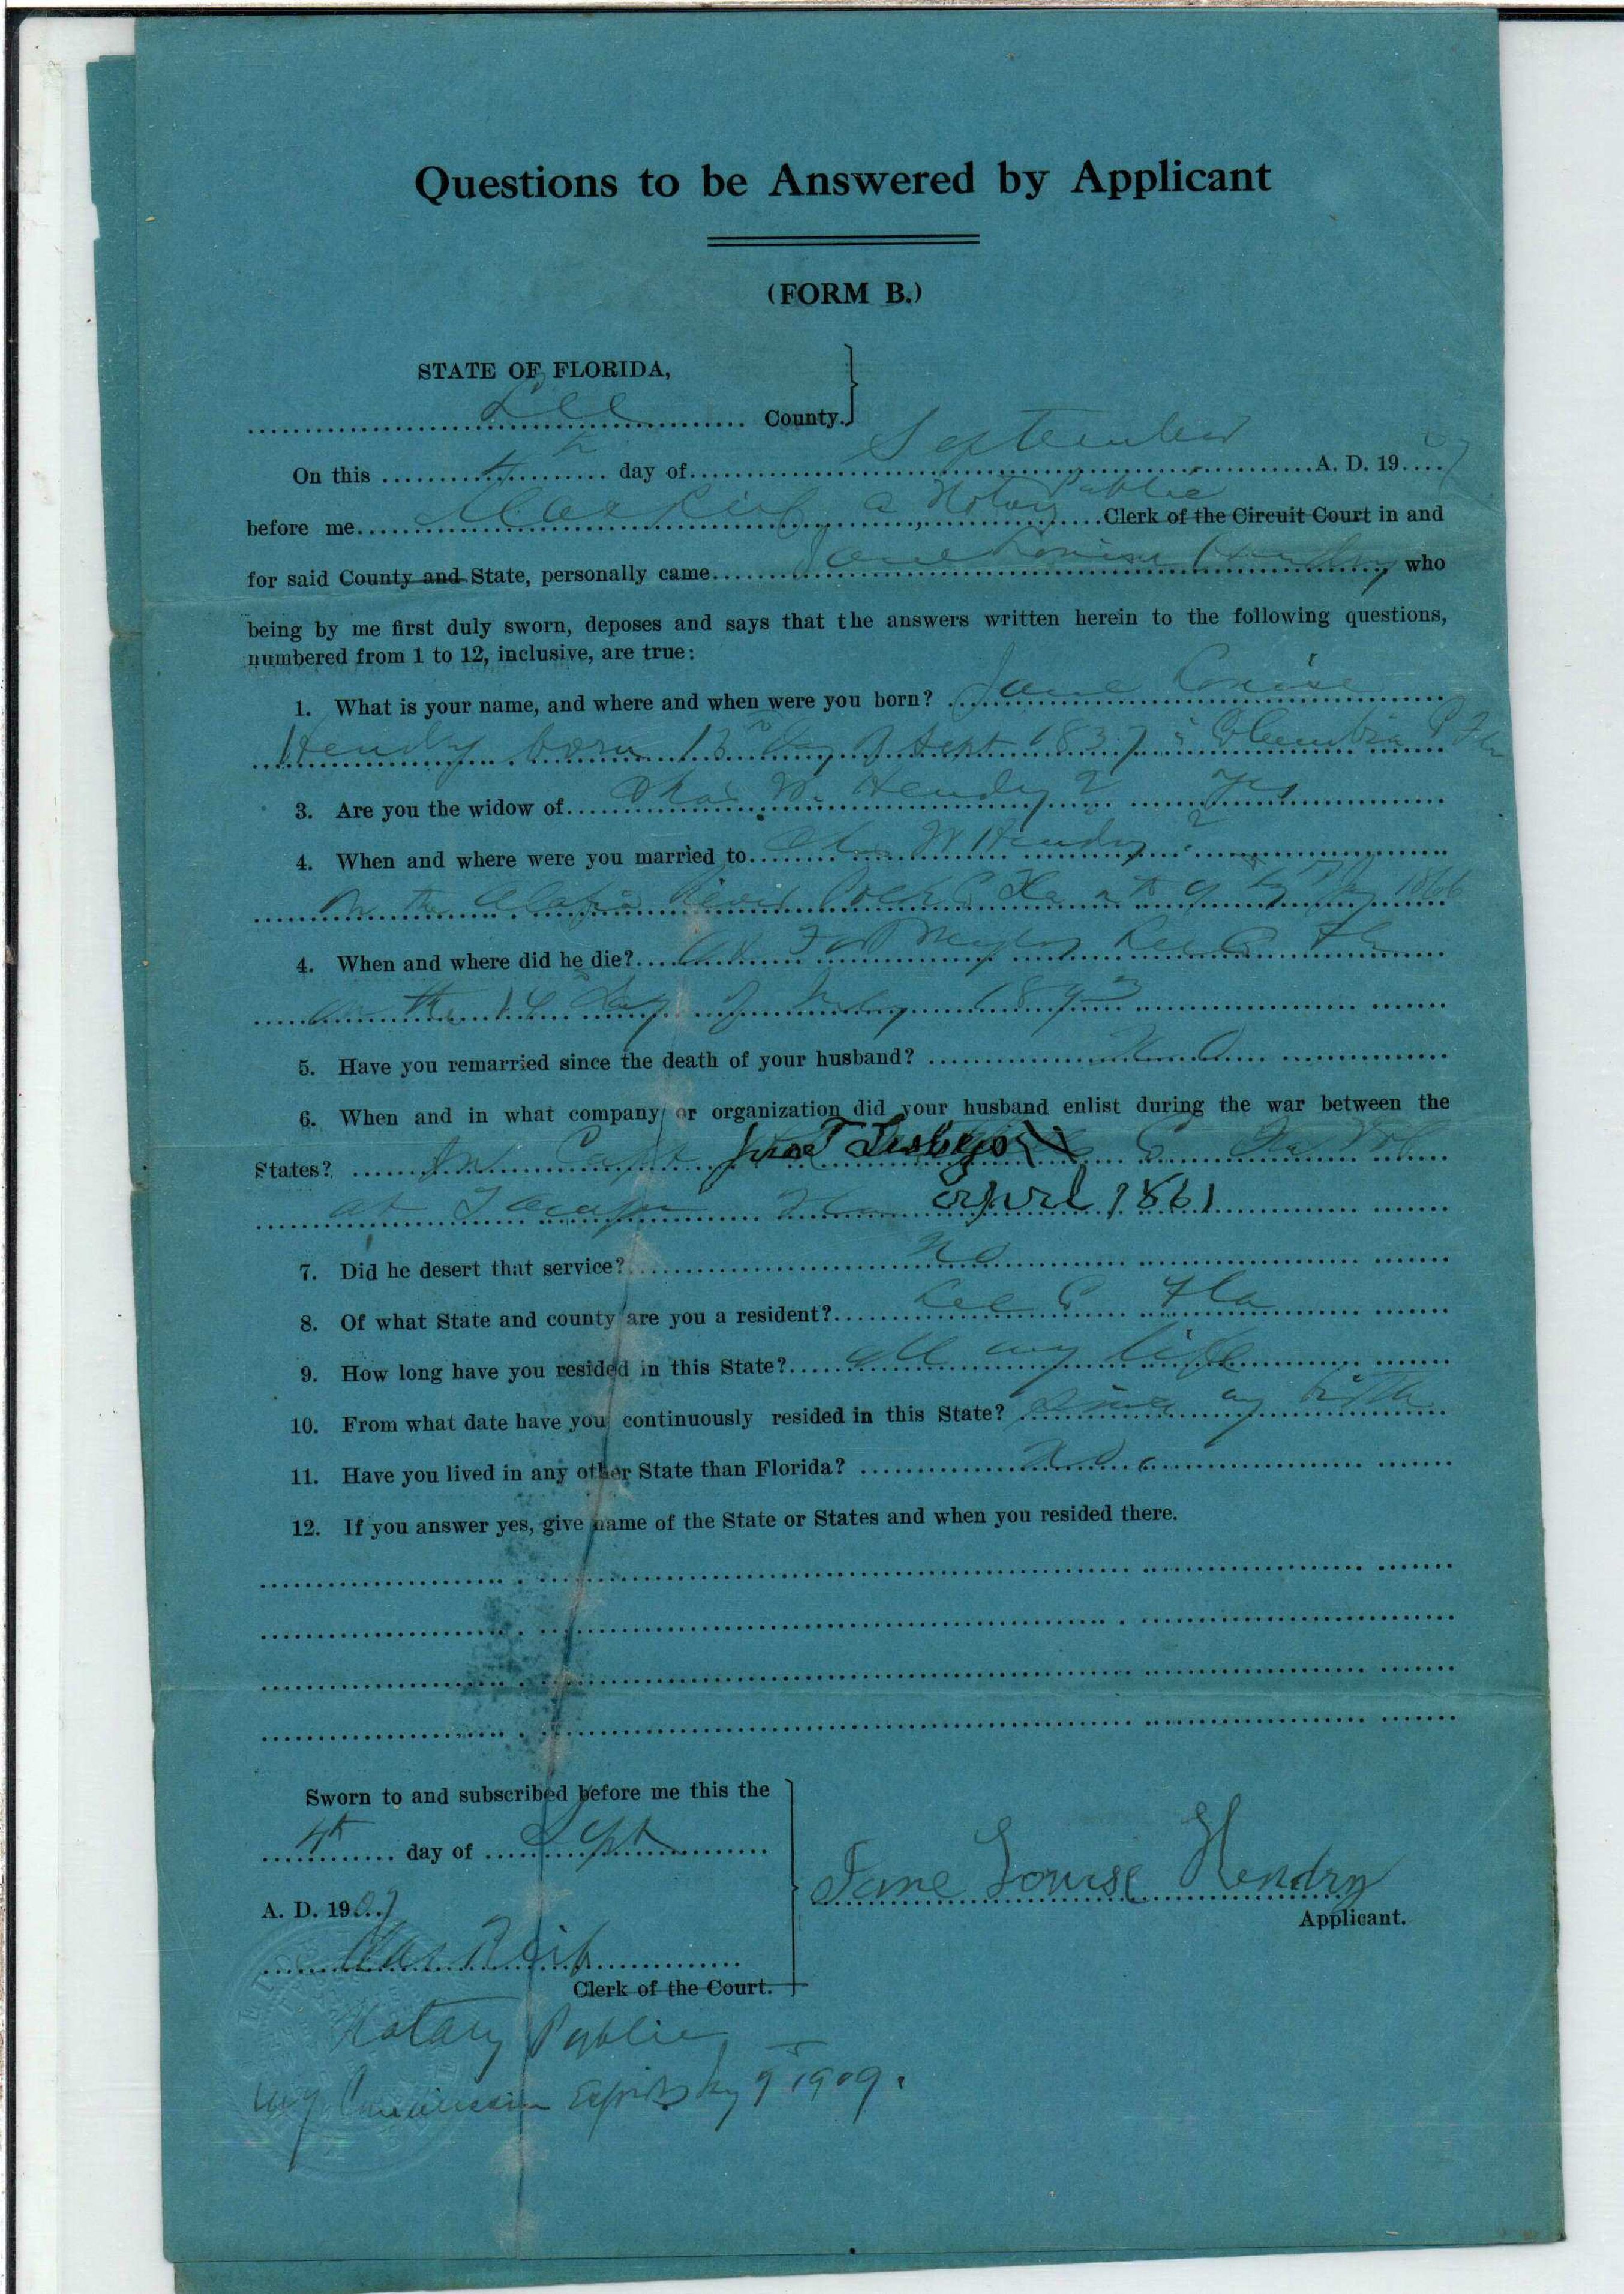 Questions to be Answered by Applicant
(FORM B.)
STATE OF FLORIDA,
Lee County.
On this 4th day of September A. D. 1907
before me a Notary Public Clerk of the Circuit Court in and
for said County and State, personally came Jane Louise Hendry who
being by me first duly sworn, deposes and says that the answers written herein to the following questions,
numbered from 1 to 12, inclusive, are true:
1. What is your name, and where and when were you born? Jane Louise
Hendry born 13th day of Sept 1837 in Columbia Co Fla
3. Are you the widow of Chas W. Hendry? Yes
4. When and where were you married to Chas W Hendry?
On the Alafia River Polk Co Fla 1866
4. When and where did he die? At Fort Myers Lee Co Fla
on the 14 day of July 1893
5. Have you remarried since the death of your husband? No
6. When and in what company or organization did your husband enlist during the war between the
States? In Capt Co Fla Vol
at Tampa Fla april 1861
7. Did he desert that service? No
8. Of what State and county are you a resident? Lee Co Fla
9. How long have you resided in this State? all my life
10. From what date have you continuously resided in this State? Since my birth
11. Have you lived in any other State than Florida? No
12. If you answer yes, give name of the State or States and when you resided there.
Sworn to and subscribed before me this the
4th day of Sept
A. D. 1907
Jane Louise Hendry
Applicant.
Clerk of the Court.
Notary Public
My Commission Expires 9 1909.